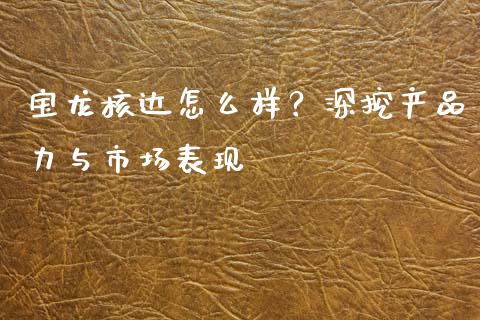 宝龙核边怎么样？深挖产品
力与市场表现